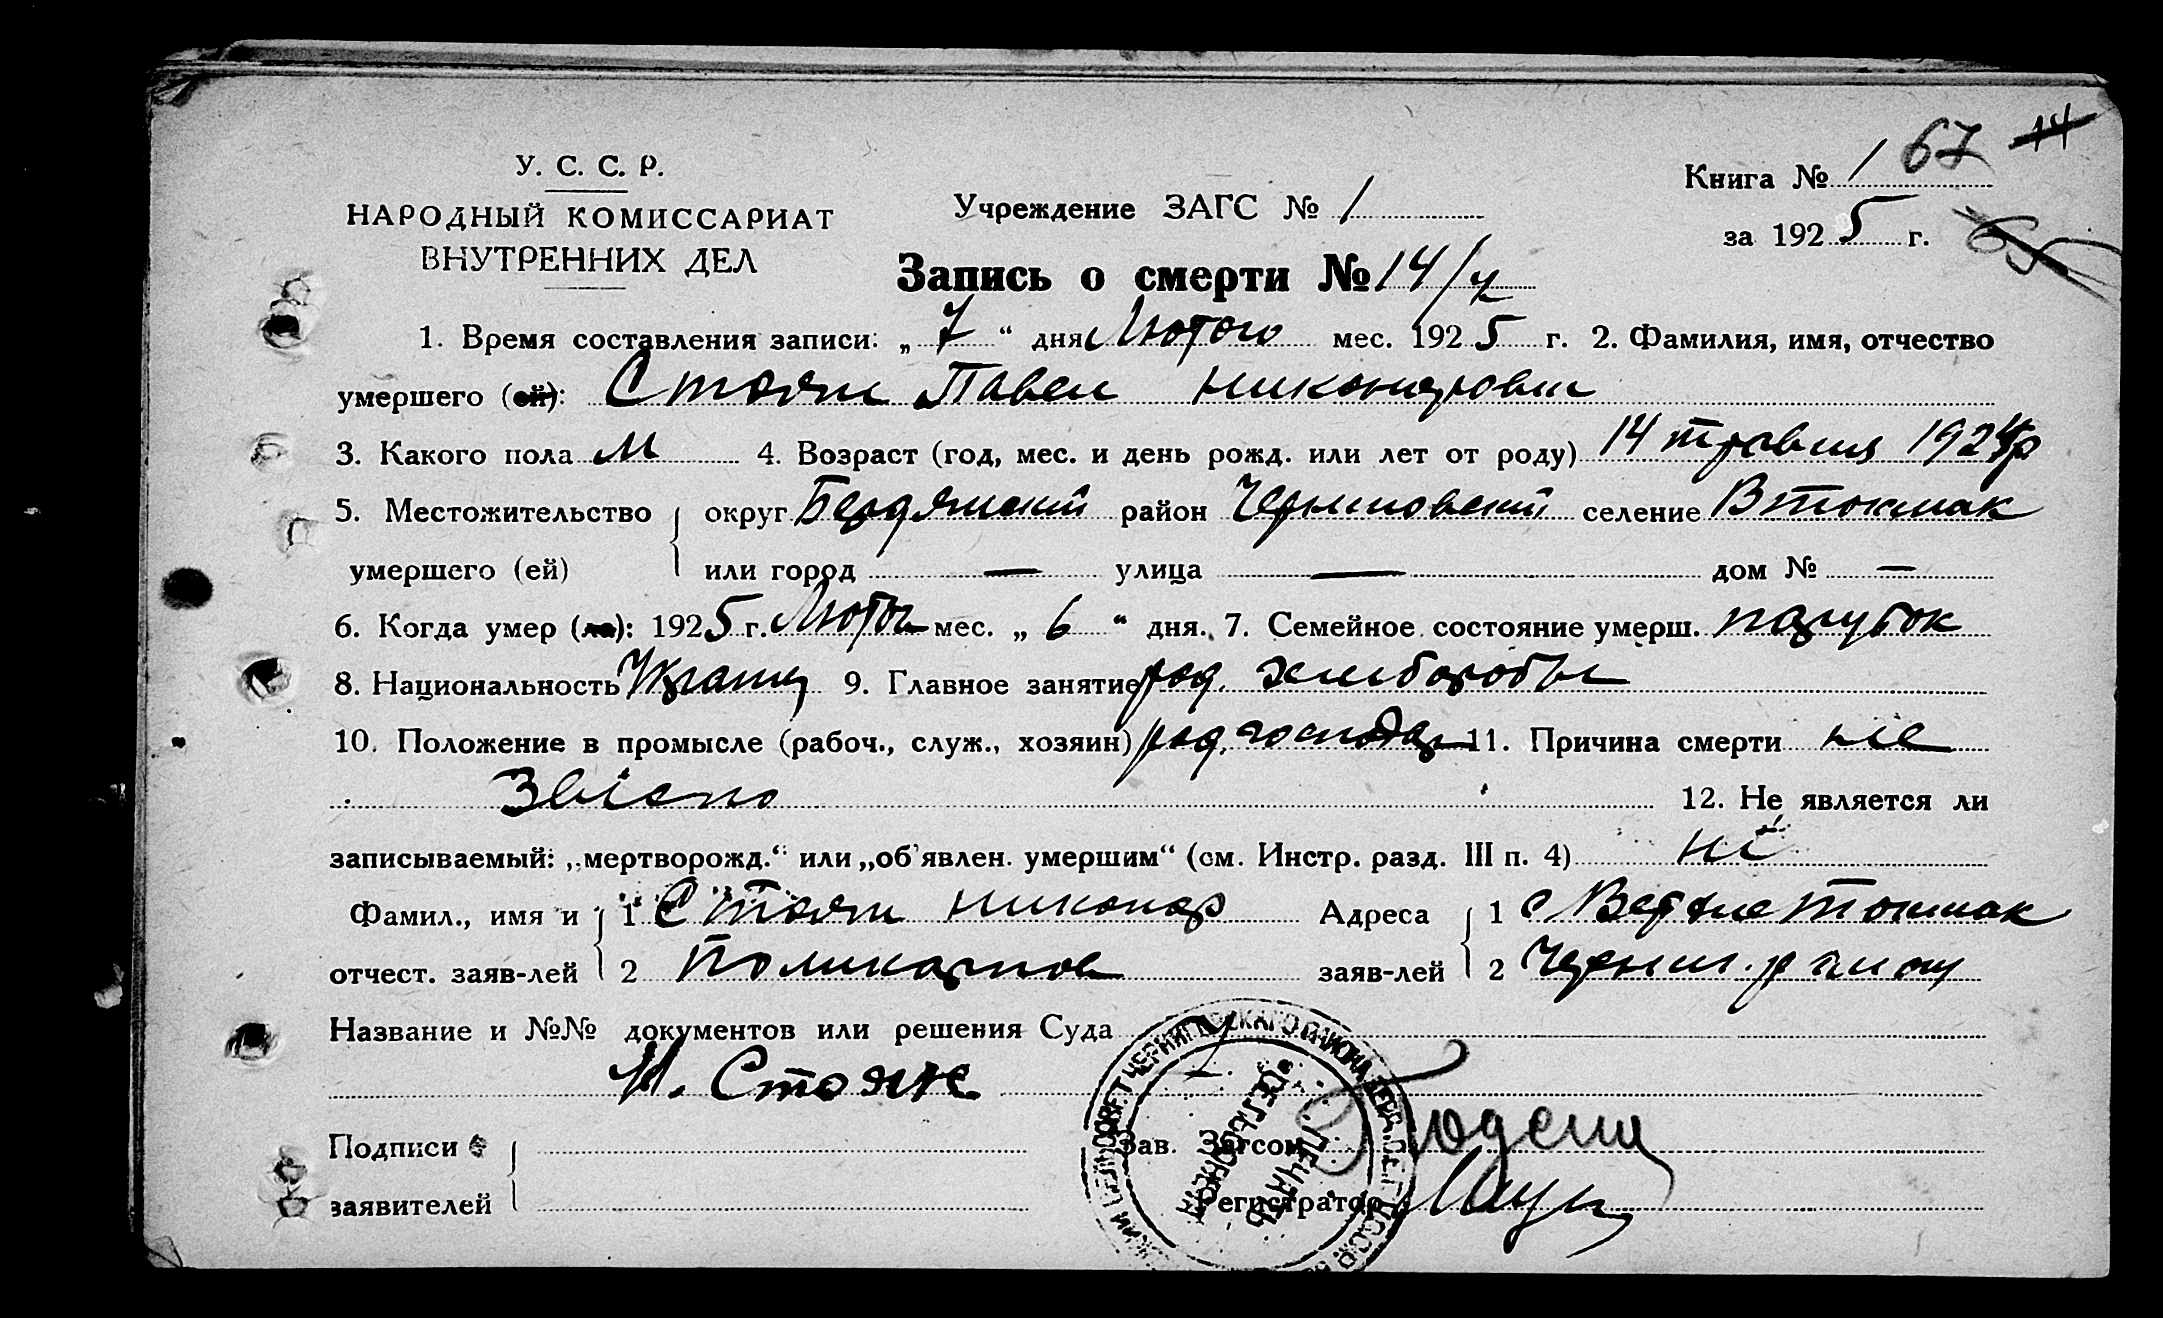 67 14
У. С. С. Р.
НАРОДНЫЙ КОМИССАРИАТ
ВНУТРЕННИХ ДЕЛ
Учреждение ЗАГС № 1
Книга № 1
за 1925 г.
Запись о смерти № 14/ч
1. Время составления записи: „7“ дня Лютого мес. 1925 г. 2. Фамилия, имя, отчество
умершего (ей): Стоян Павел Никонорович
3. Какого пола М 4. Возраст (год, мес. и день рожд. или лет от роду) 14 травня 1924р
5. Местожительство округ Бердянский район Черниговский селение Втокмак
умершего (ей) или город — улица — дом № —
6. Когда умер (ла): 1925 г. Лютого мес. „6“ дня. 7. Семейное состояние умерш. парубок
8. Национальность Украинц 9. Главное занятие род. хлибороби
10. Положение в промысле (рабоч., служ., хозяин) род. господар 11. Причина смерти не
звісно 12. Не является ли
записываемый: „мертворожд.“ или „об'явлен. умершим“ (см. Инстр. разд. III п. 4) ні
Фамил., имя и 1 Стоян Никонор Адреса 1 с Верхне Токмак
отчест. заяв-лей 2 Поликарпов заяв-лей 2 Черниг. району
Название и №№ документов или решения Суда
Н. Стоян
Подписи Зав. Загсом
заявителей Регистратор
ЧЕРНИГОВСКАГО РАЙОНА
ПЕЧАТЬ